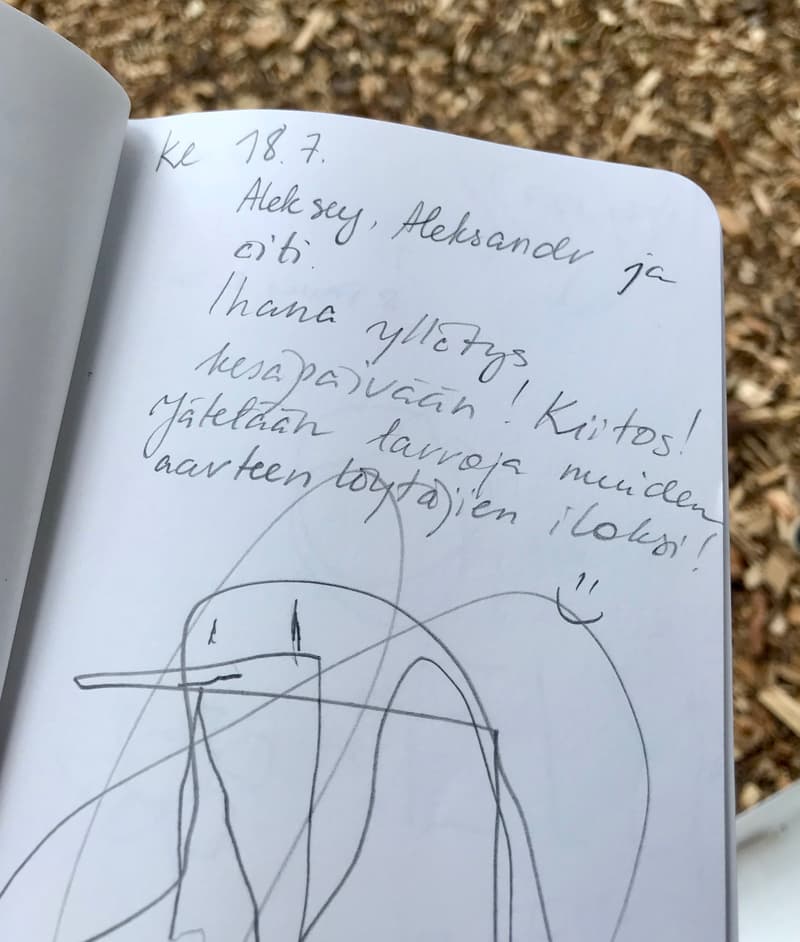 ke 18.7.
Aleksey, Aleksandr ja
äiti.
Ihana yllätys
kesäpäivään! Kiitos!
Jätetään tarroja muiden
aarteen löytäjien iloksi!